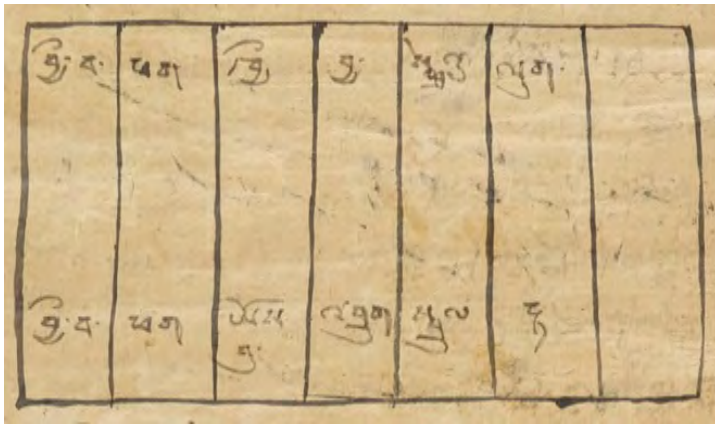 བྱི་བ་ ཕག ཁྱི བྱ་ སྤྲེའུ ལུག་
བྱི་བ་ ཕག འབྲུག སྦྲུལ རྟ